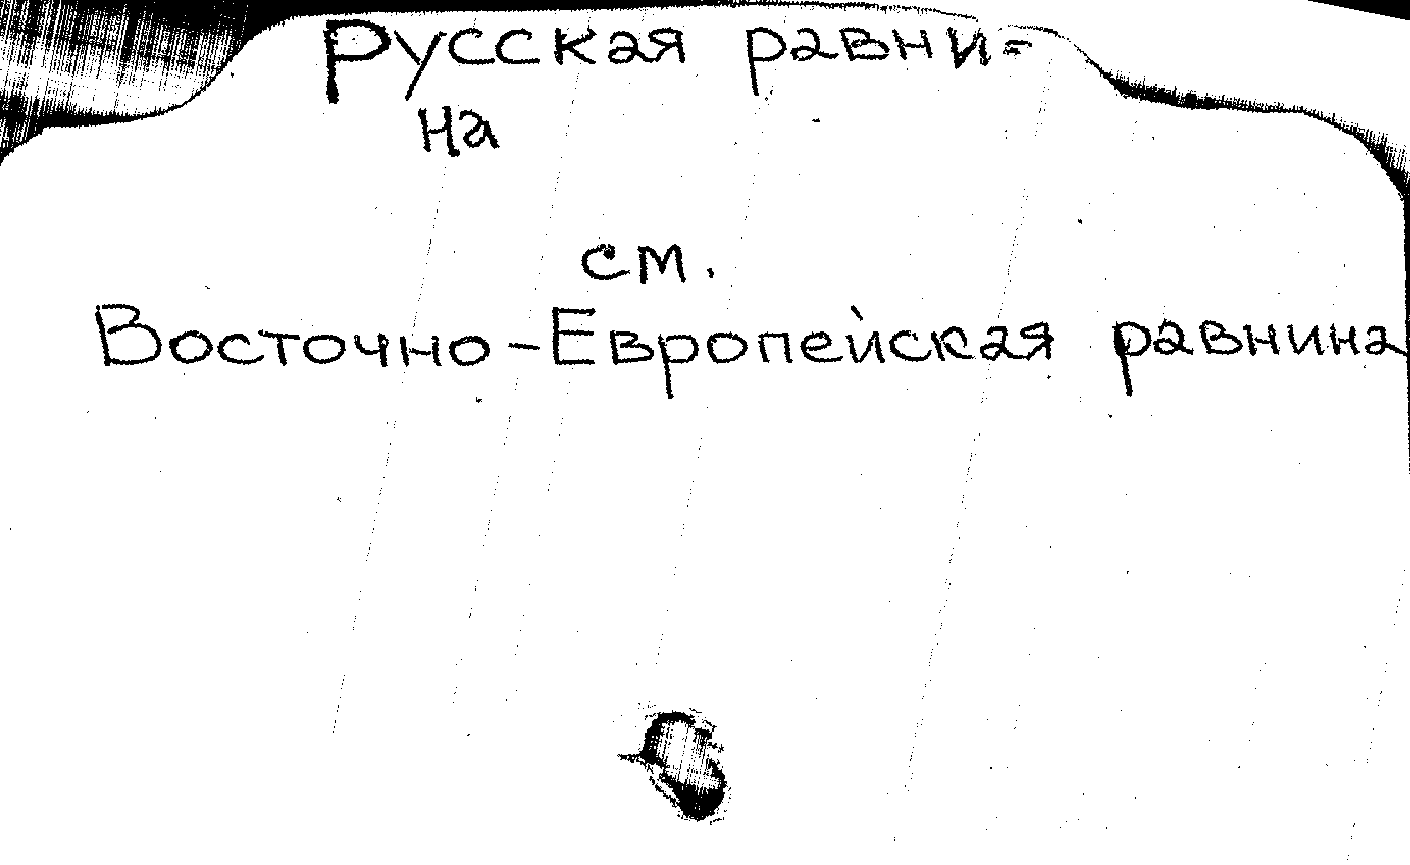 Русская равни=
на
см.
Восточно-Европейская равнина